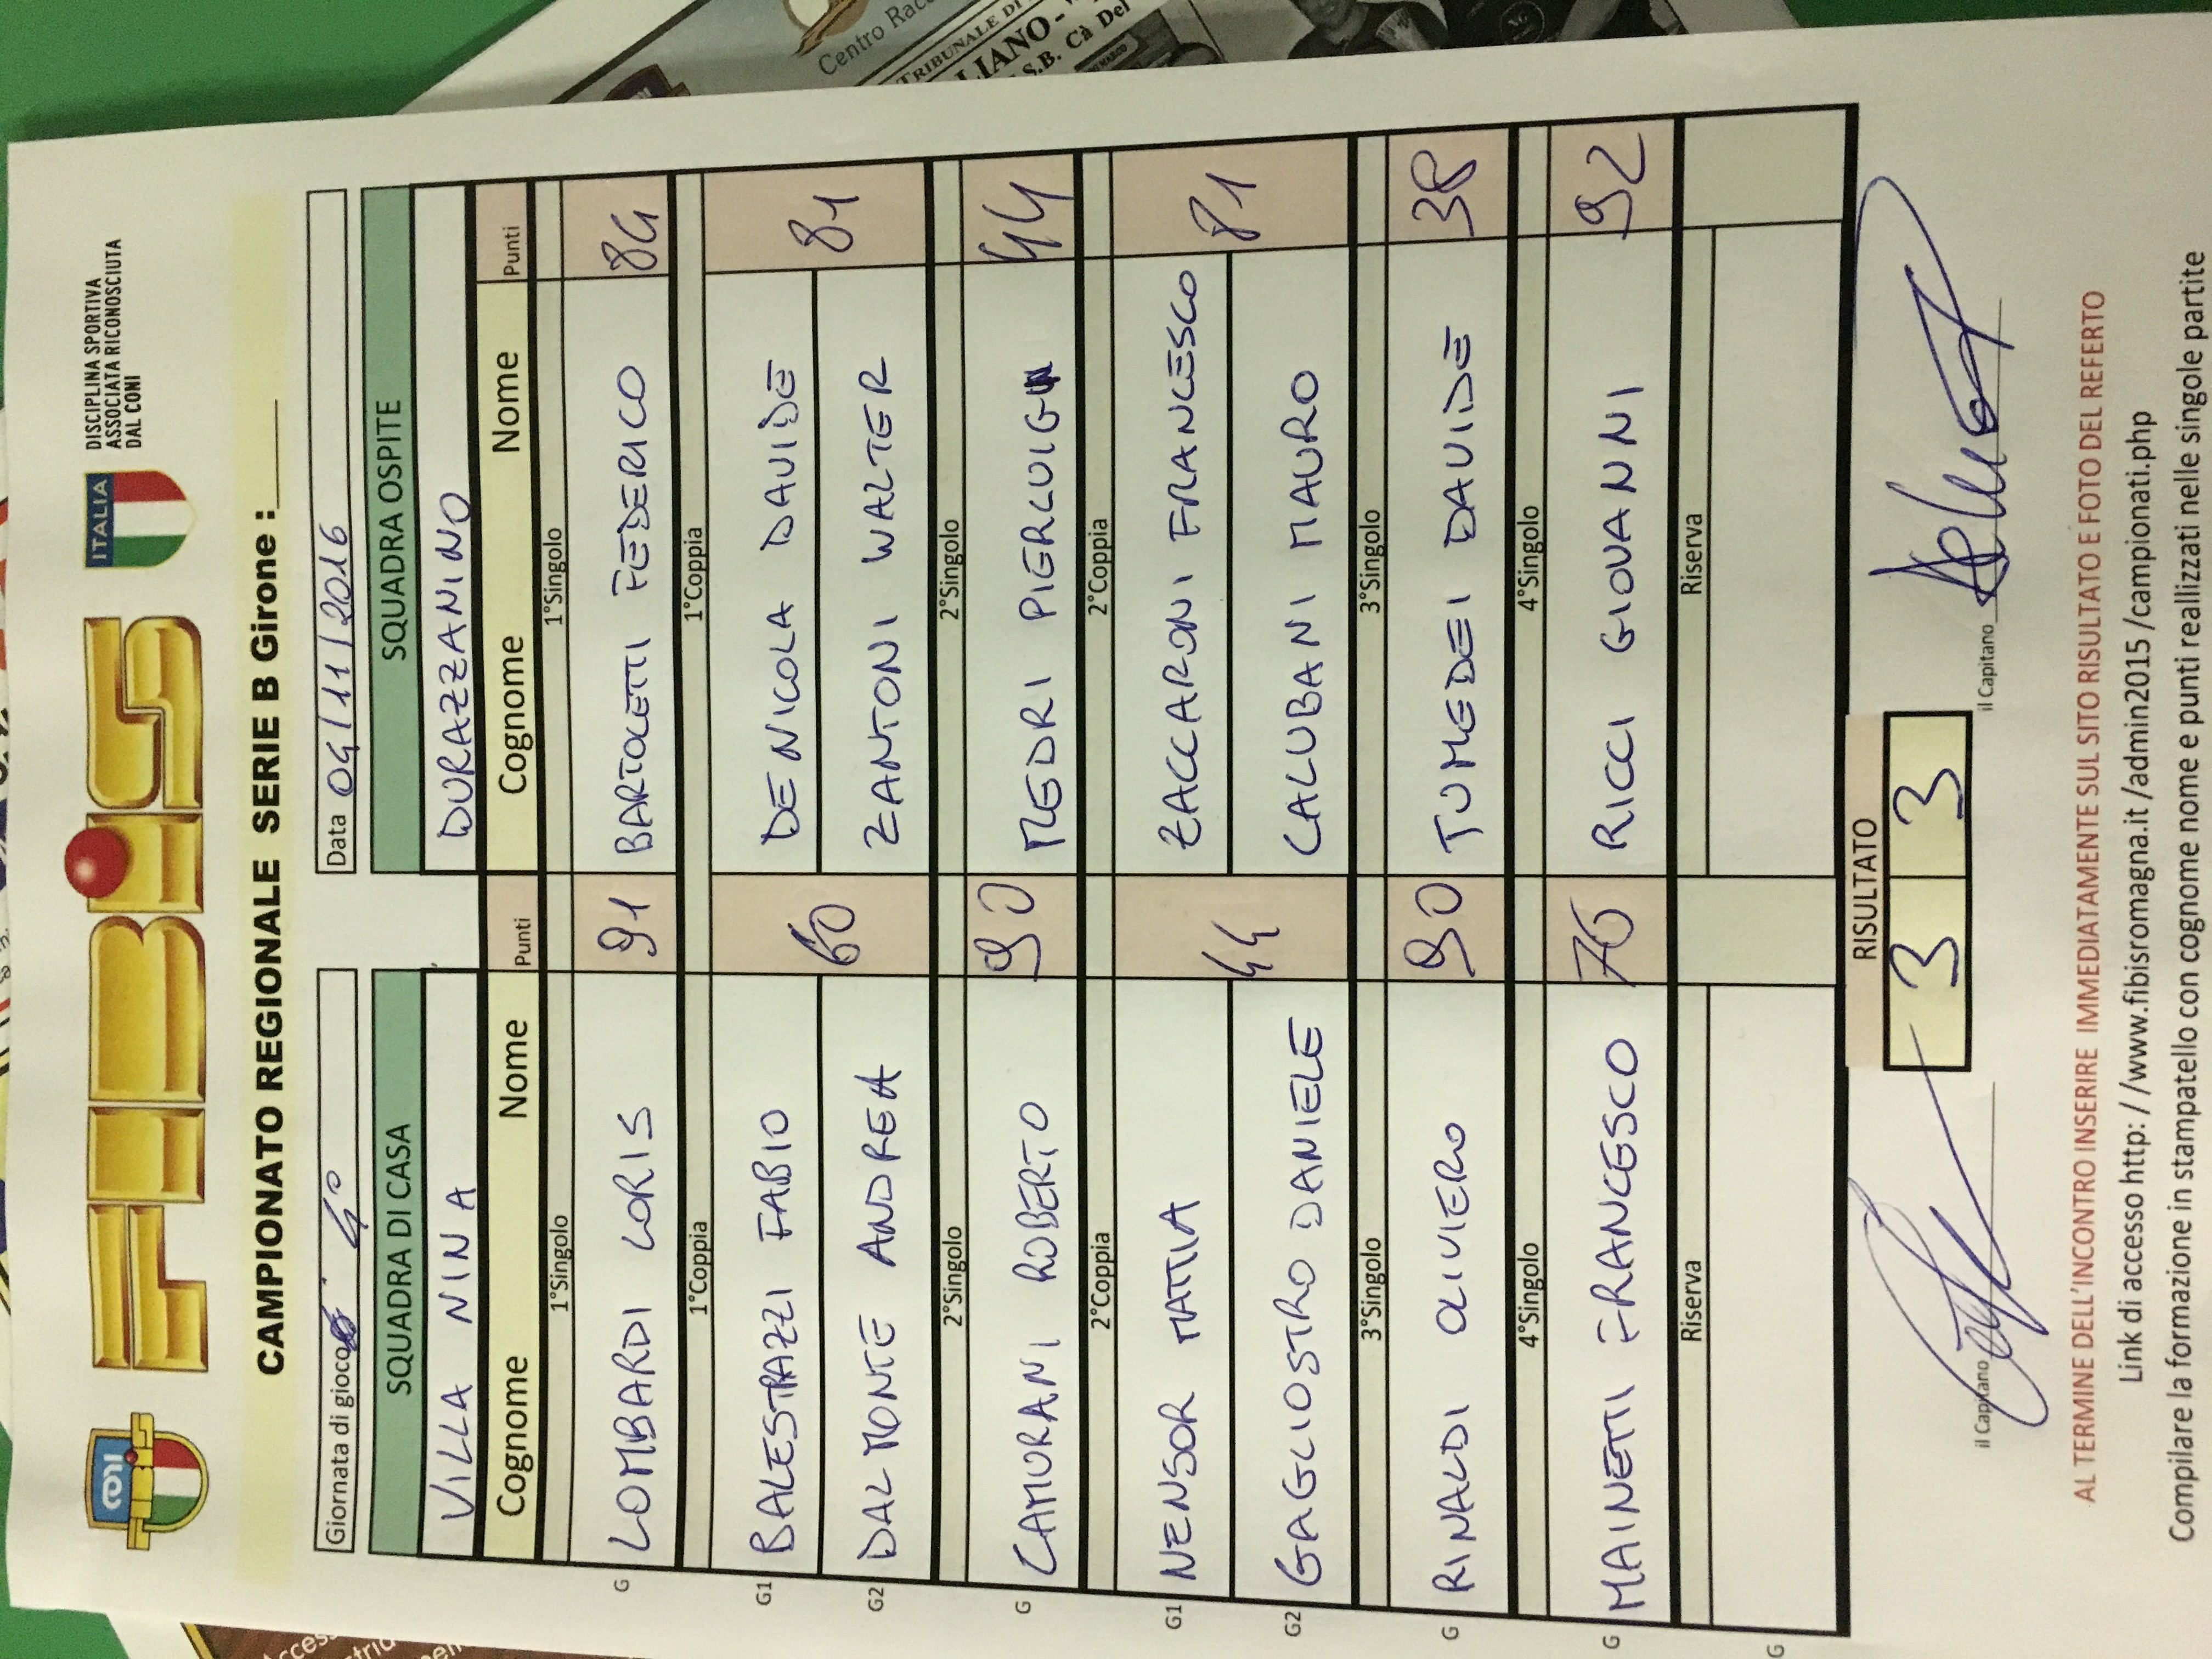 FIBIS
ITALIA
DISCIPLINA SPORTIVA
ASSOCIATA RICONOSCIUTA
DAL CONI
CAMPIONATO REGIONALE SERIE B Girone :
Giornata di gioco 4°
Data 04/11/2016
SQUADRA DI CASA SQUADRA OSPITE
VILLA NINA DURAZZANINO
Cognome Nome Punti Cognome Nome Punti
1°Singolo 1°Singolo
G LOMBARDI LORIS 91 BARTOLETTI FEDERICO 84
1°Coppia 1°Coppia
G1 BALESTRAZZI FABIO 60 DENICOLA DAVIDE 81
G2 DALMONTE ANDREA ZANTONI WALTER
2°Singolo 2°Singolo
G CAMORANI ROBERTO 90 MEDRI PIERLUIGI 44
2°Coppia 2°Coppia
G1 NENSOR MATTIA 44 ZACCARONI FRANCESCO 81
G2 GAGLIOSTRO DANIELE CALUBANI MAURO
3°Singolo 3°Singolo
G RINALDI OLIVIERO 90 TUMEDEI DAVIDE 38
4°Singolo 4°Singolo
G MAINETTI FRANCESCO 76 RICCI GIOVANNI 92
Riserva Riserva
G
RISULTATO
3 3
il Capitano il Capitano
AL TERMINE DELL'INCONTRO INSERIRE IMMEDIATAMENTE SUL SITO RISULTATO E FOTO DEL REFERTO
Link di accesso http: / /www.fibisromagna.it /admin2015 /campionati.php
Compilare la formazione in stampatello con cognome nome e punti reallizzati nelle singole partite
Centro
TRIBUNALE DI
LIANO -
S.B. Cà Del